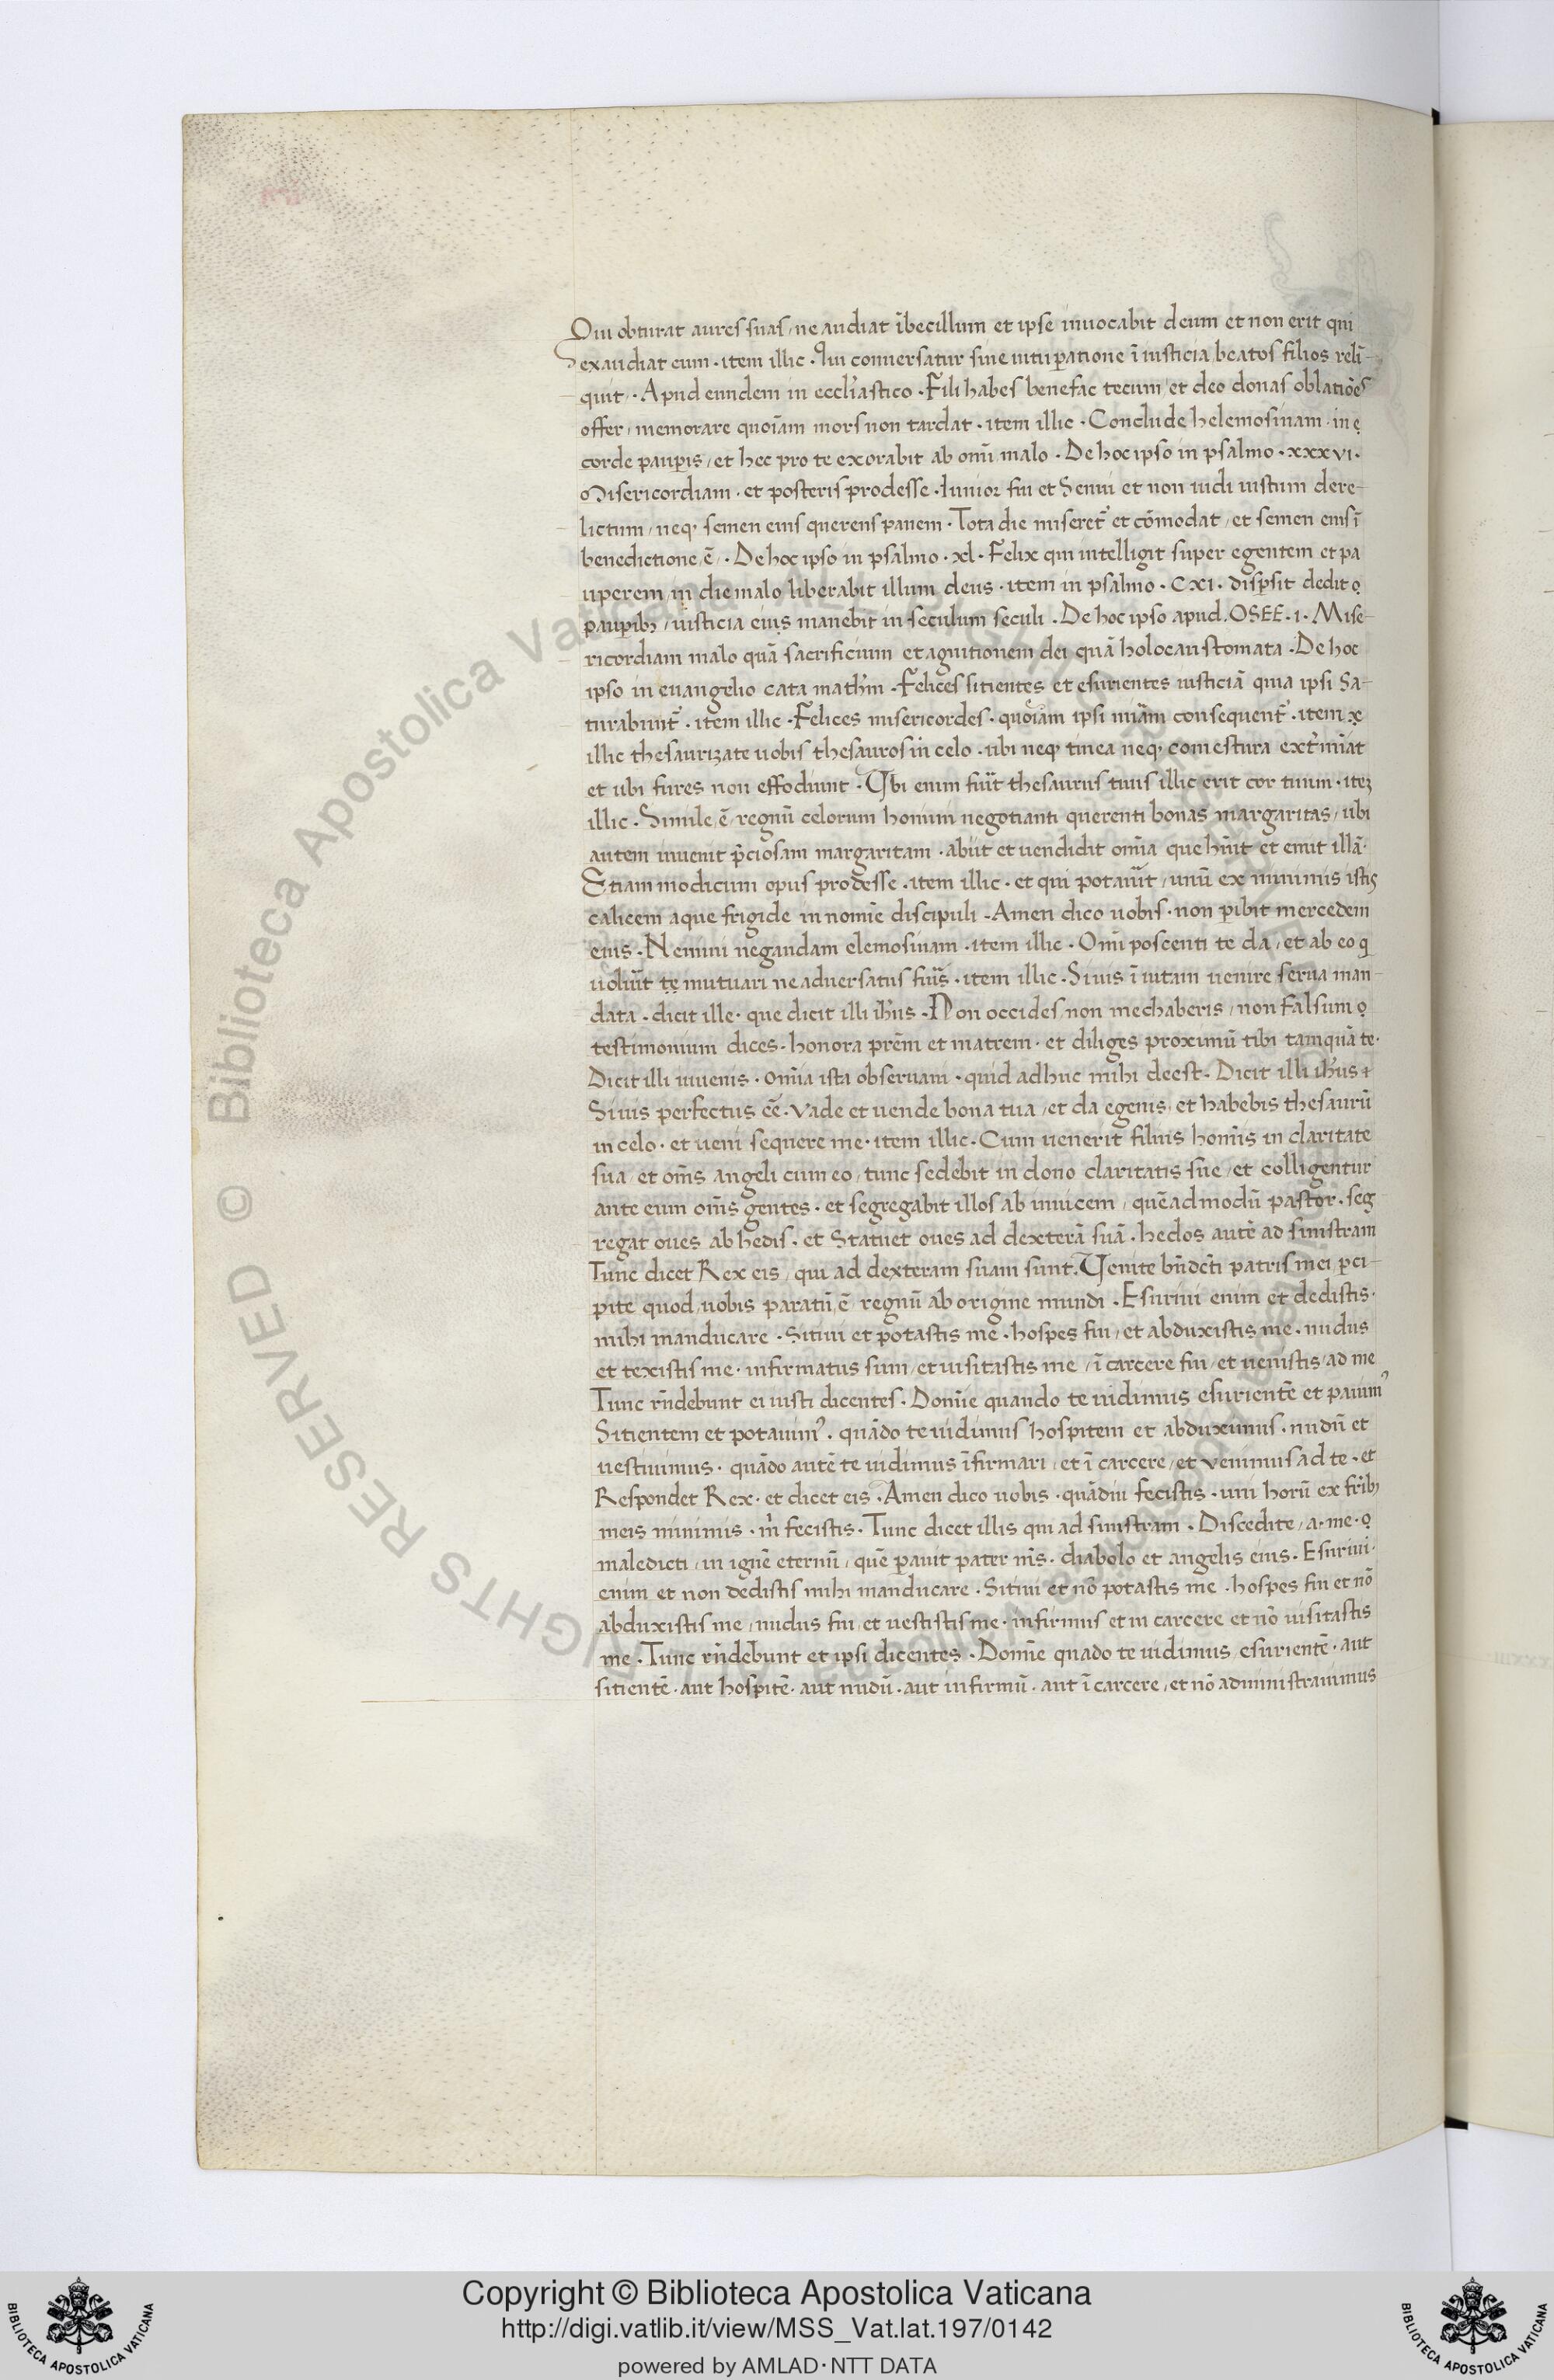 Qui obturat aures suas / ne audiat ībecillum et ipse inuocabit deum et non erit qui
exaudiat eum · item illic · Qui conuersatur sine uitup̱atione ī iusticia beatos filios reli-
quit · Apud eundem in eccl̄iastico · Fili habes benefac tecum / et deo donas oblatiōes
offer / memorare quoīam mors non tardat · item illic · Conclude helemosinam · in
corde paup̱is / et hec pro te exorabit ab om̄i malo · De hoc ipso in psalmo · xxxvi ·
Misericordiam · et posteris prodesse · Iunior fui et Senui et non uidi iustum dere-
lictum / neq₃ semen eius querens panem · Tota die miseret̄ et cōmodat / et semen eius ī
benedictione / ē / · De hoc ipso in psalmo · xl · Felix qui intelligit super egentem et pa
uperem in die malo liberabit illum deus · item in psalmo · CXI · disp̱sit dedit
paup̱ib₃ / iusticia eius manebit in seculum seculi · De hoc ipso apud · OSEE · 1 · Mise-
ricordiam malo quā sacrificium et agnitionem dei quā holocaustomata · De hoc
ipso in euangelio cata math̄m · Felices sitientes et esurientes iusticiā quia ipsi Sa-
turabunt̄ · item illic · Felices misericordes · quoīam ipsi miām consequent̄ · item
illic thesaurizate uobis thesauros in celo · ubi neq₃ tinea neq₃ comestura ext̄mīat
et ubi fures non effodiunt · Ubi enim fūit thesaurus tuus illic erit cor tuum · itez
illic · Simile / ē / regnū celorum homini negotianti querenti bonas margaritas / ubi
autem inuenit p̄ciosam margaritam · abiit et uendidit om̄ia que h̄uit et emit illā ·
Etiam modicum opus prodesse · item illic · et qui potaūit / unū ex minimis istis
calicem aque frigide in nomīe discipuli · Amen dico uobis · non p̱ibit mercedem
eius · Nemini negandam elemosinam · item illic · Om̄i poscenti te da / et ab eo q
uolūit te mutuari ne aduersatus fūis · item illic · Si uis ī uitam uenire serua man-
data · dicit ille · que dicit illi ih̄us · Non occides non mechaberis / non falsum
testimonium dices · honora pr̄em et matrem · et diliges proximū tibi tamquā te ·
Dicit illi iuuenis · om̄ia ista obseruam · quid adhuc mihi deest · Dicit illi ih̄us
Si uis perfectus eē · vade et uende bona tua / et da egenis · et habebis thesaurū
in celo · et ueni sequere me · item illic · Cum uenerit filius homīs in claritate
sua / et om̄s angeli cum eo / tunc sedebit in dono claritatis sue / et colligentur
ante eum om̄s gentes · et segregabit illos ab inuicem / quēadmodū pastor · seg
regat oues ab hedis · et Statuet oues ad dexterā suā · hedos autē ad sinistram
Tunc dicet Rex eis / qui ad dexteram suam sunt. Uenite bn̄dcti patris mei p̱ci-
pite quod / uobis paratū / ē regnū ab origine mundi · Esuriui enim et dedistis ·
mihi manducare · Sitiui et potastis me · hospes fui / et abduxistis me · nudus
et texistis me · infirmatus sum / et uisitastis me / ī carcere fui / et uenistis / ad me
Tunc rn̄debunt ei iusti dicentes · Domīe quando te uidimus esurientē et pauim⁹
Sitientem et potauim⁹ · quādo te uidimus hospitem et abduximus · nudū et
uestiuimus · quādo autē te uidimus īfirmari / et ī carcere / et venimus ad te · et
Respondet Rex · et dicet eis · Amen dico uobis · quādiu fecistis · uni horū ex fr̄ib₃
meis minimis · m̄ fecistis · Tunc dicet illis qui ad sinistram · Discedite / a · me ·
maledicti / in ignē eternū / quē p̱auit pater m̄s · diabolo et angelis eius · Esuriui ·
enim et non dedistis mihi manducare · Sitiui et nō potastis me · hospes fui et nō
abduxistis me / nudus fui / et uestistis me · infirmus et in carcere et nō uisitastis
me · Tunc rn̄debunt et ipsi dicentes · Domīe quado te uidimus / esurientē · aut
sitientē · aut hospitē · aut nudū · aut infirmū · aut ī carcere / et nō administrauimus
© Biblioteca Apostolica Vaticana ALL RIGHTS RESERVED
Copyright © Biblioteca Apostolica Vaticana
http://digi.vatlib.it/view/MSS_Vat.lat.197/0142
powered by AMLAD·NTT DATA
BIBLIOTECA APOSTOLICA VATICANA
BIBLIOTECA APOSTOLICA VATICANA